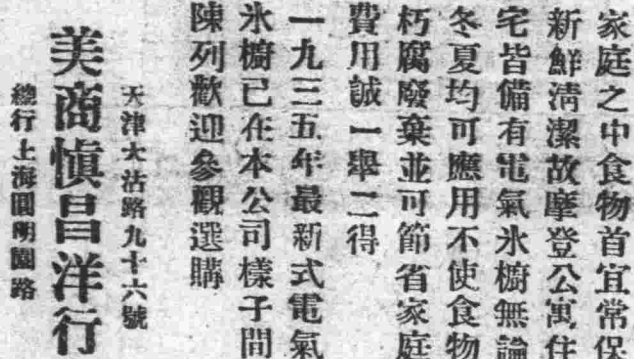 家庭之中食物首宜常保
新鮮清潔故摩登公寓住
宅皆備有電氣氷櫥無論
冬夏均可應用不使食物
朽腐廢棄並可節省家庭
費用誠一舉二得
一九三五年最新式電氣
氷櫥已在本公司樣子間
陳列歡迎參觀選購
天津大沽路九十六號
美商慎昌洋行
總行上海圓明園路